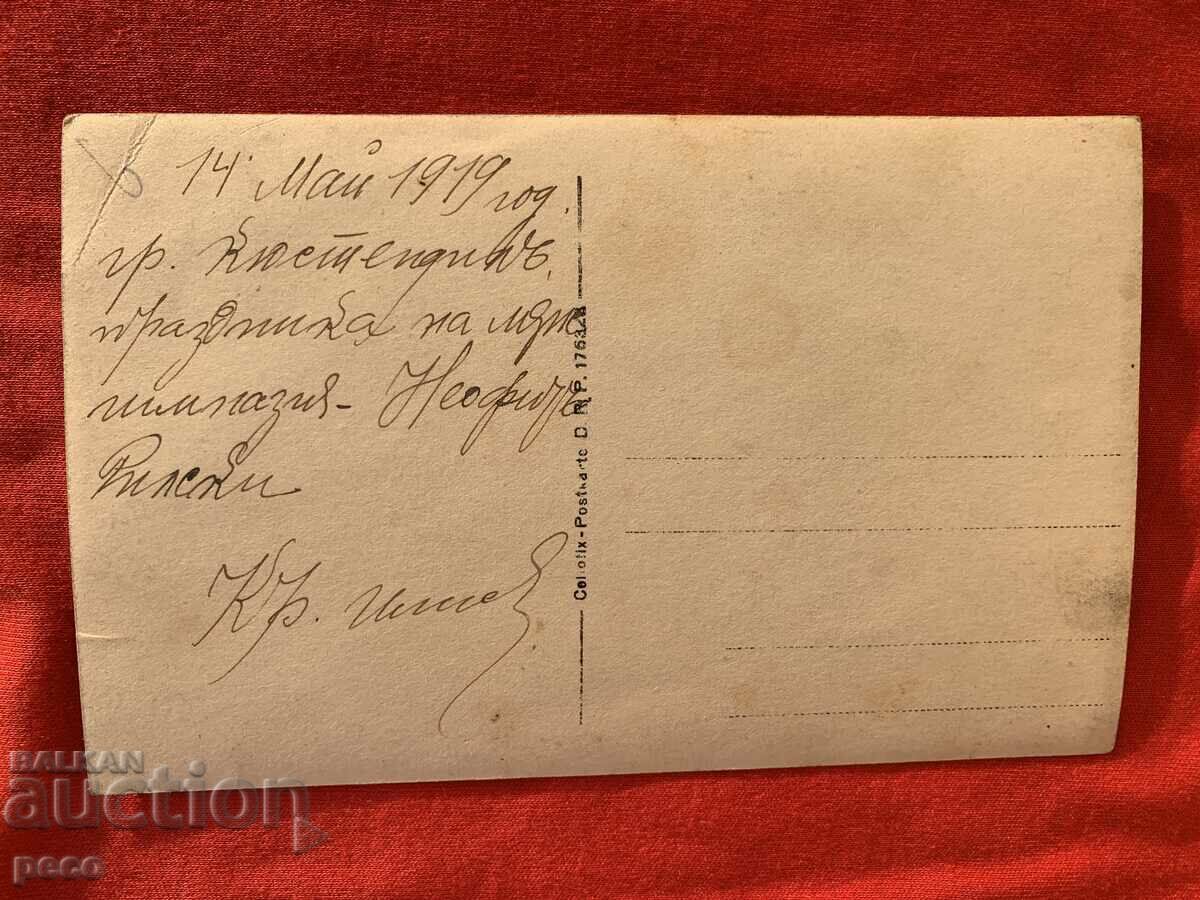 14 Май 1919 год.
гр. Кюстендилъ,
празника на мѫж.
гимназия - Неофитъ
Рилски
Кр.
Cellofix-Postkarte D. R. P. 176323
BALKAN
auction
peco